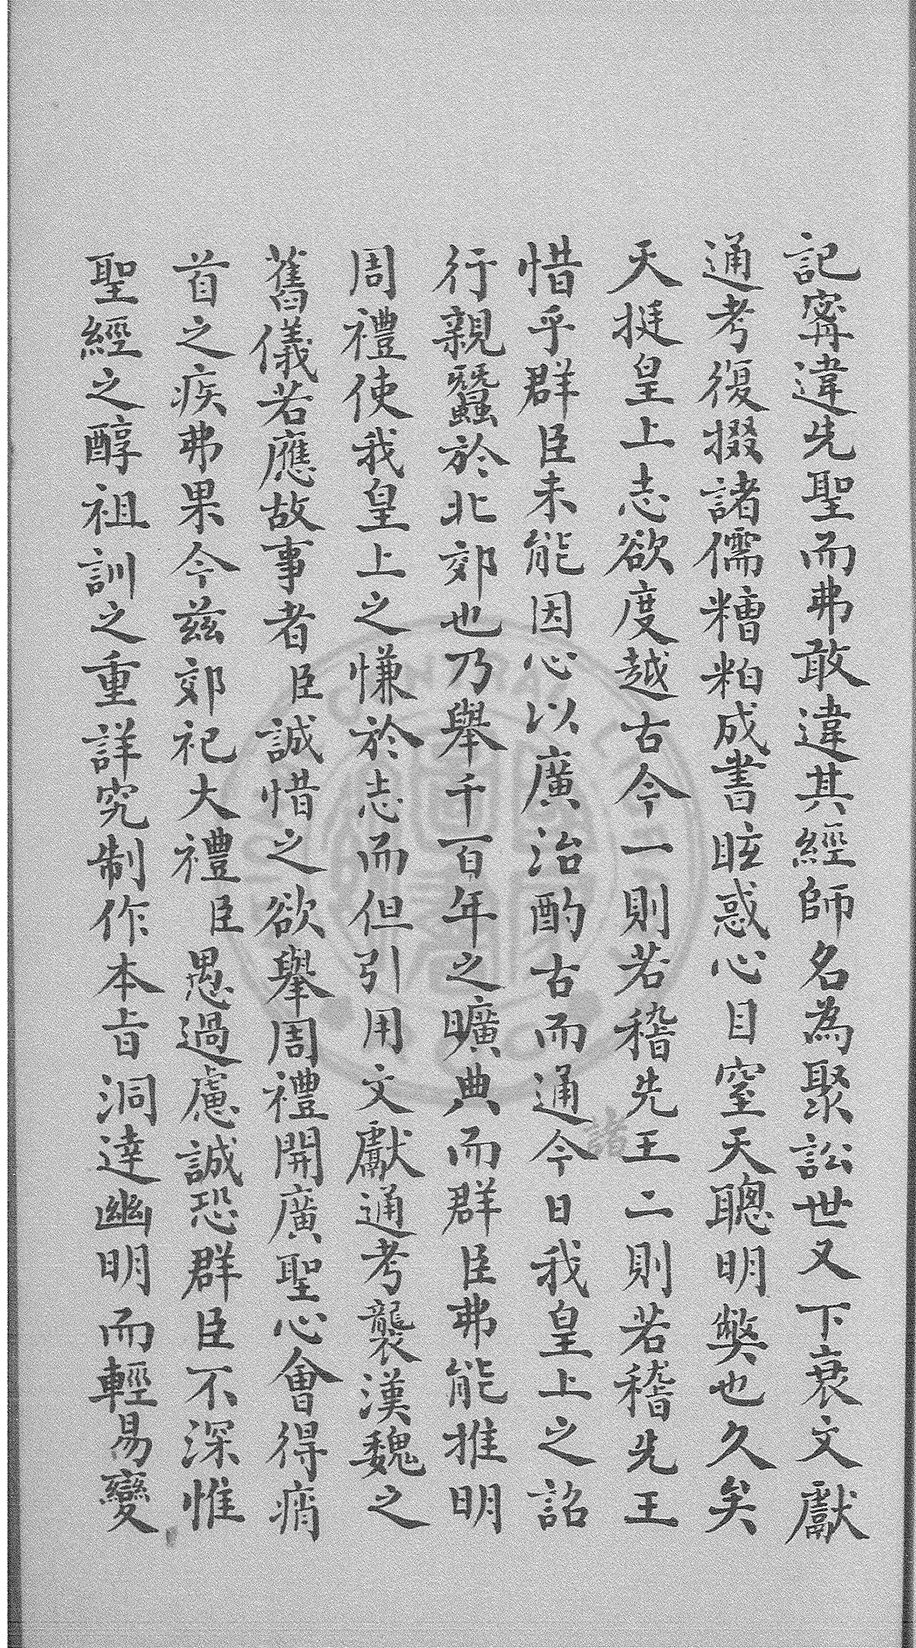 記寗違先聖而弗敢違其經師名為聚訟世又下衰文獻
通考復掇諸儒糟粕成書眩惑心目窒天聰明獘也久矣
天挺皇上志欲度越古今一則若稽先王二則若稽先王
諸
惜乎群臣未能因心以廣治酌古而通今日我皇上之詔
行親蠶於北郊也乃舉千百年之曠典而群臣弗能推明
周禮使我皇上之慊於志而但引用文獻通考襲漢魏之
舊儀若應故事者臣誠惜之欲舉周禮開廣聖心會得痟
首之疾弗果今茲郊祀大禮臣愚過慮誠恐群臣不深惟
聖經之醇祖訓之重詳究制作本旨洞達幽明而輕易變